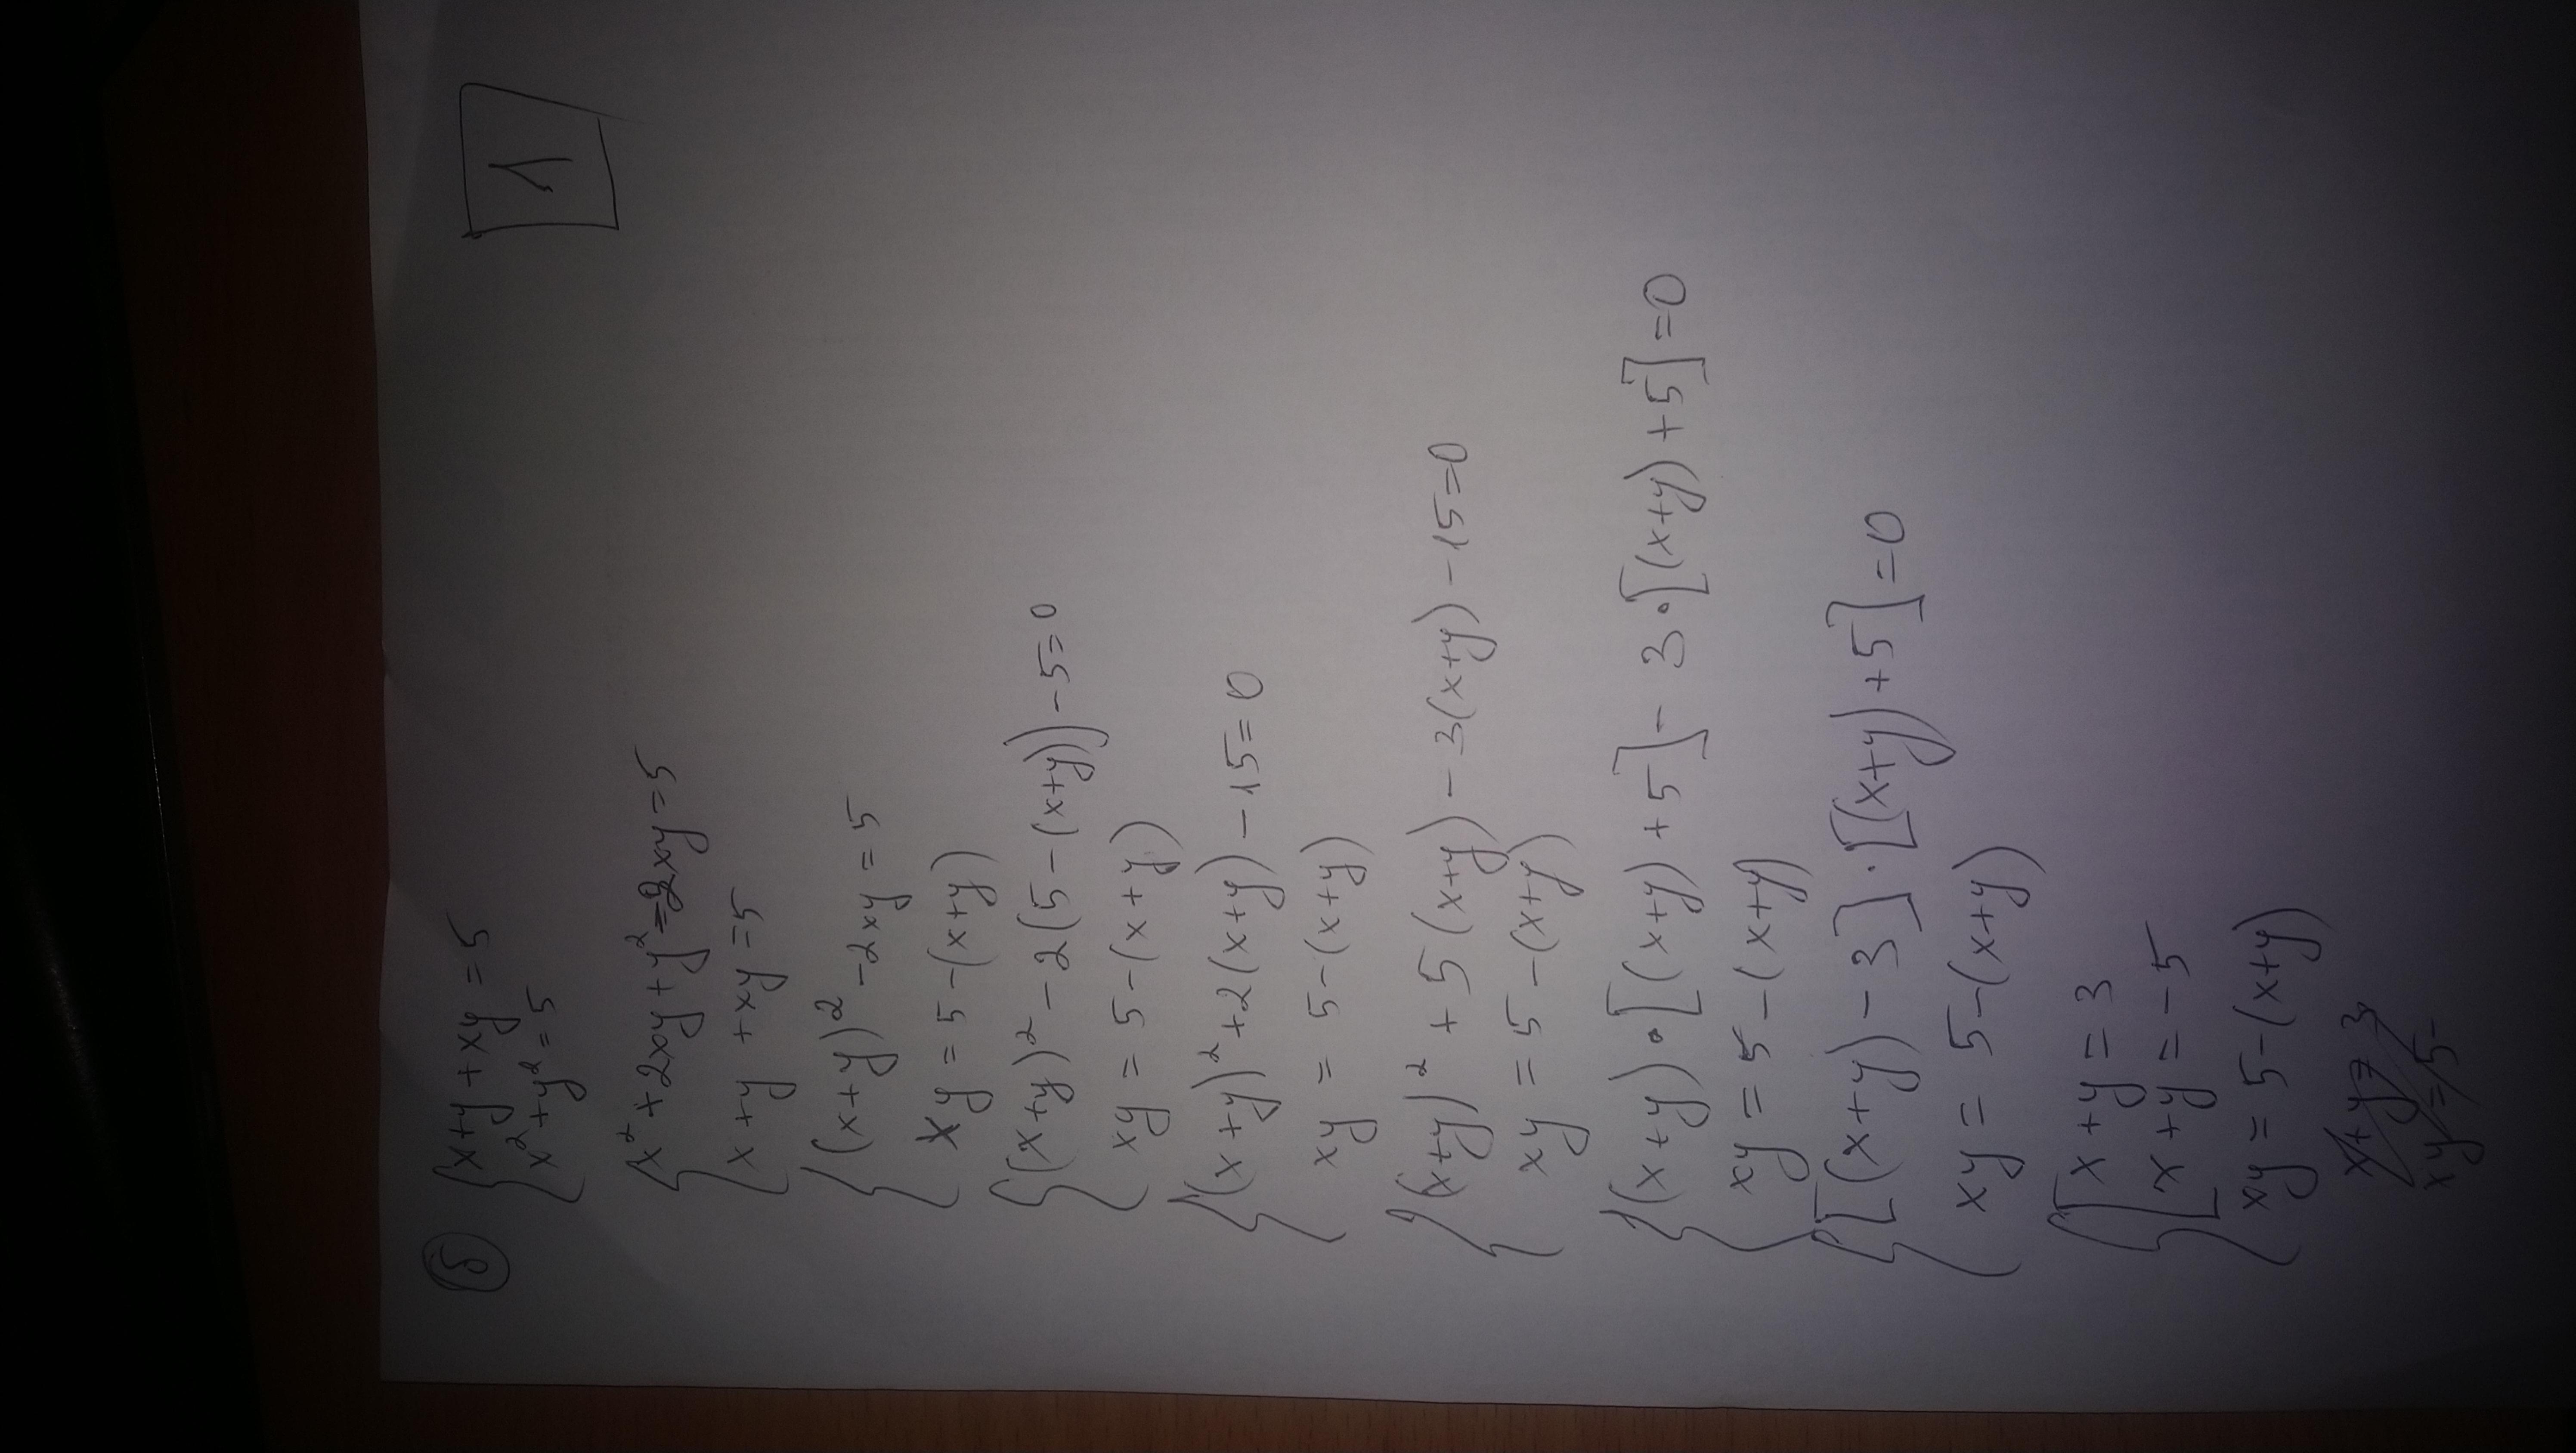 1
б) { x+y+xy=5
x²+y²=5
{ x²+2xy+y²-2xy=5
x+y+xy=5
{ (x+y)²-2xy=5
xy=5-(x+y)
{ (x+y)²-2(5-(x+y))-5=0
xy=5-(x+y)
{ (x+y)²+2(x+y)-15=0
xy=5-(x+y)
{ (x+y)²+5(x+y)-3(x+y)-15=0
xy=5-(x+y)
{ (x+y)·[(x+y)+5]-3·[(x+y)+5]=0
xy=5-(x+y)
{ [(x+y)-3]·[(x+y)+5]=0
xy=5-(x+y)
{ [ x+y=3
x+y=-5
xy=5-(x+y)
x+y=3
xy=5-